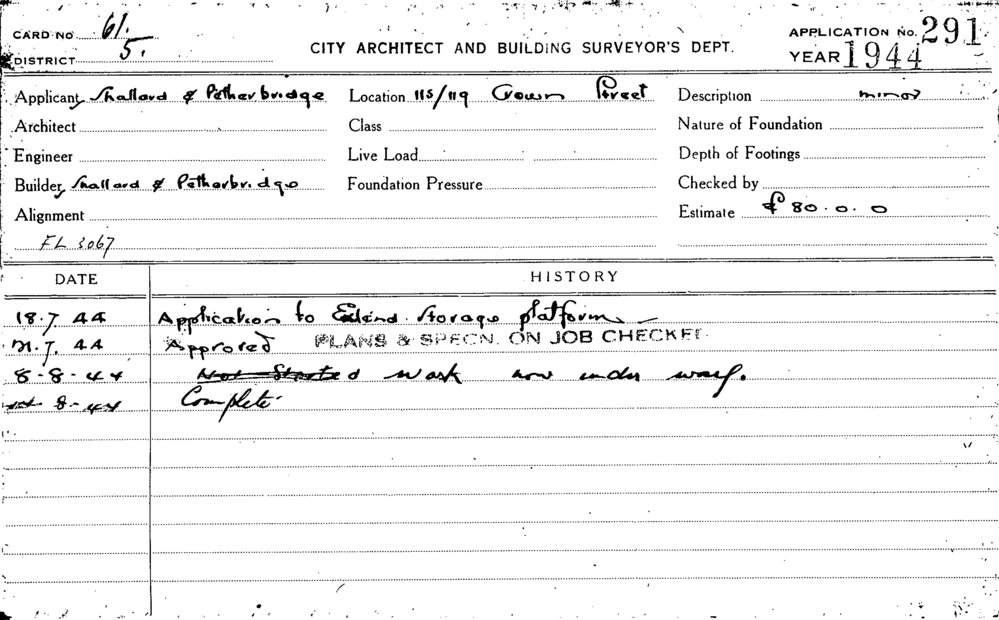 CARD NO 61.
DISTRICT 5.
CITY ARCHITECT AND BUILDING SURVEYOR'S DEPT.
APPLICATION No. 291
YEAR 1944
Applicant Shallard & Petherbridge Location 115/119 Crown Street Description minor
Architect Class Nature of Foundation
Engineer Live Load Depth of Footings
Builder Shallard & Petherbridge Foundation Pressure Checked by
Alignment Estimate £80.0.0
FL 3067
DATE HISTORY
18.7.44 Application to Extend Storage platform
.7.44 Approved PLANS & SPECN. ON JOB CHECKED
8-8-44 Not Started work now under way.
8-44 Complete